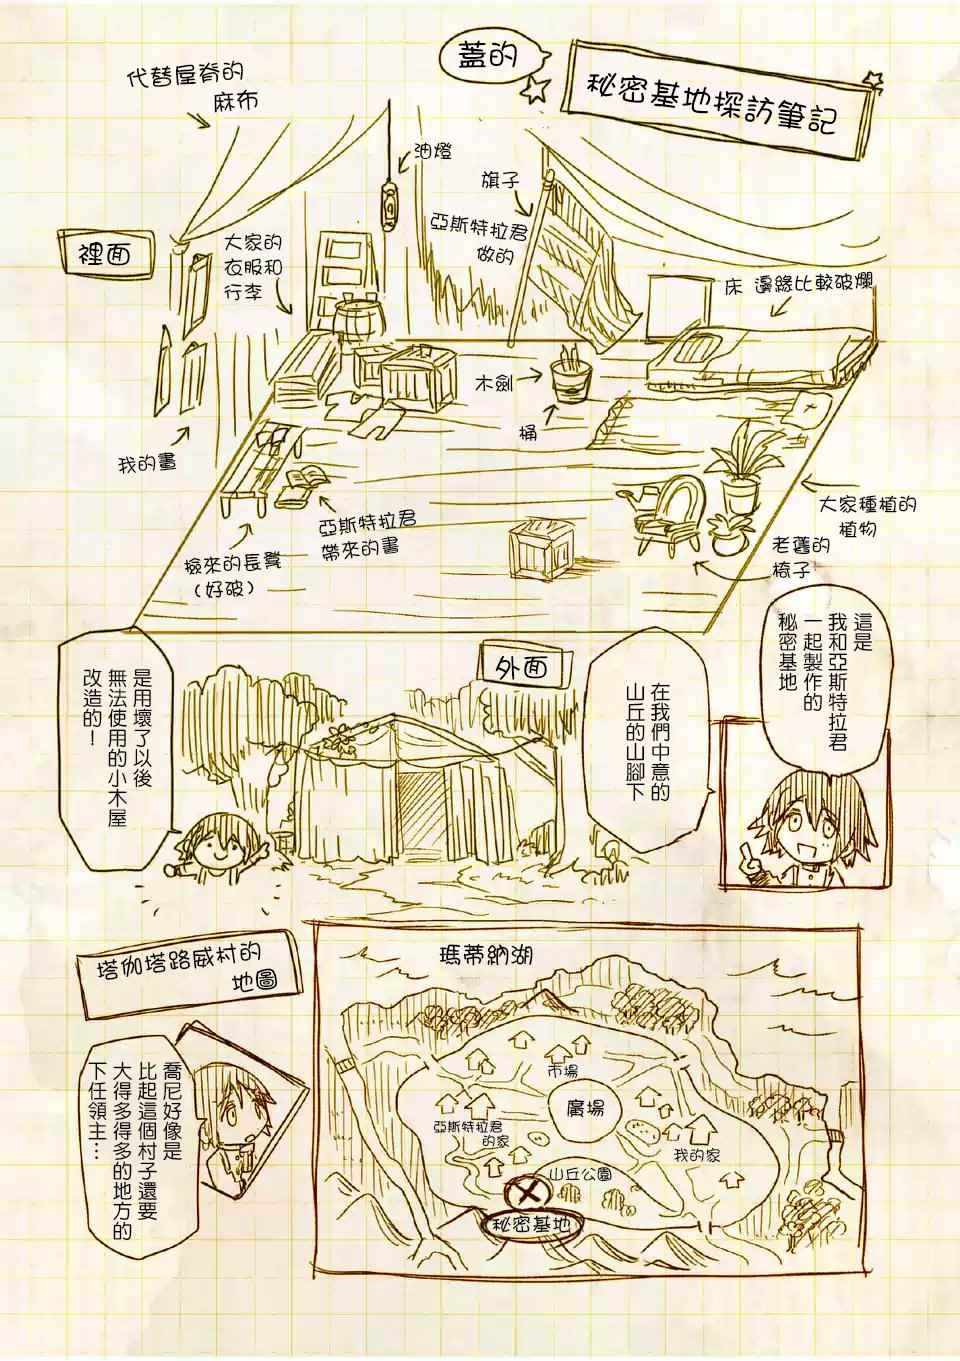 蓋的
秘密基地探訪筆記
代替屋脊的
麻布
油燈
旗子
亞斯特拉君
做的
裡面
大家的
衣服和
行李
床 邊緣比較破爛
木劍
桶
我的畫
亞斯特拉君
帶來的書
撿來的長凳
（好破）
大家種植的
植物
老舊的
椅子
這是
我和亞斯特拉君
一起製作的
秘密基地
外面
在我們中意的
山丘的山腳下
是用壞了以後
無法使用的小木屋
改造的！
塔伽塔路威村的
地圖
瑪蒂納湖
市場
廣場
亞斯特拉君
的家
我的家
山丘公園
秘密基地
喬尼好像是
比起這個村子還要
大得多得多的地方的
下任領主…